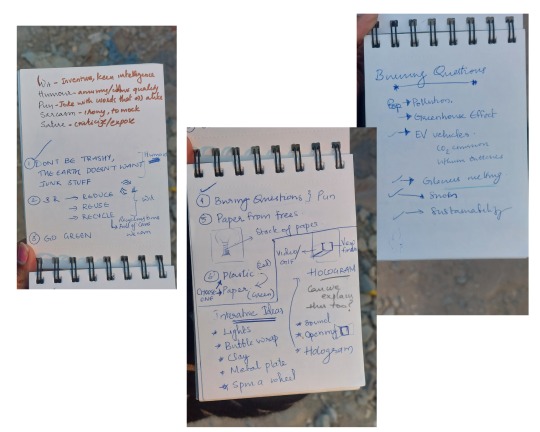 Wit - Inventive, keen intelligence
Humour - amusing/ quality
Pun - Joke with words that alike
Sarcasm - Irony, to mock
Satire - criticize/expose
① DONT BE TRASHY,
THE EARTH DOESN'T WANT
JUNK STUFF
Humour
② 3R → REDUCE
→ REUSE
→ RECYCLE
Wit
③ GO GREEN
④ Burning Questions & Pun
⑤ Paper from trees
Stack of paper
⑥ Plastic (Red)
CHOOSE ONE
Paper (Green)
Video View
HOLOGRAM
Can we
explore
this too?
Interactive Ideas
* Lights
* Bubble wrap
* Clay
* Metal plate
* Spin a wheel
* Sound
* Opening
* Hologram
Burning Questions
→ Pollution
→ Greenhouse Effect
→ EV vehicles -
CO2 emission
→ Glaciers melting
→ Smoke
→ Sustainability